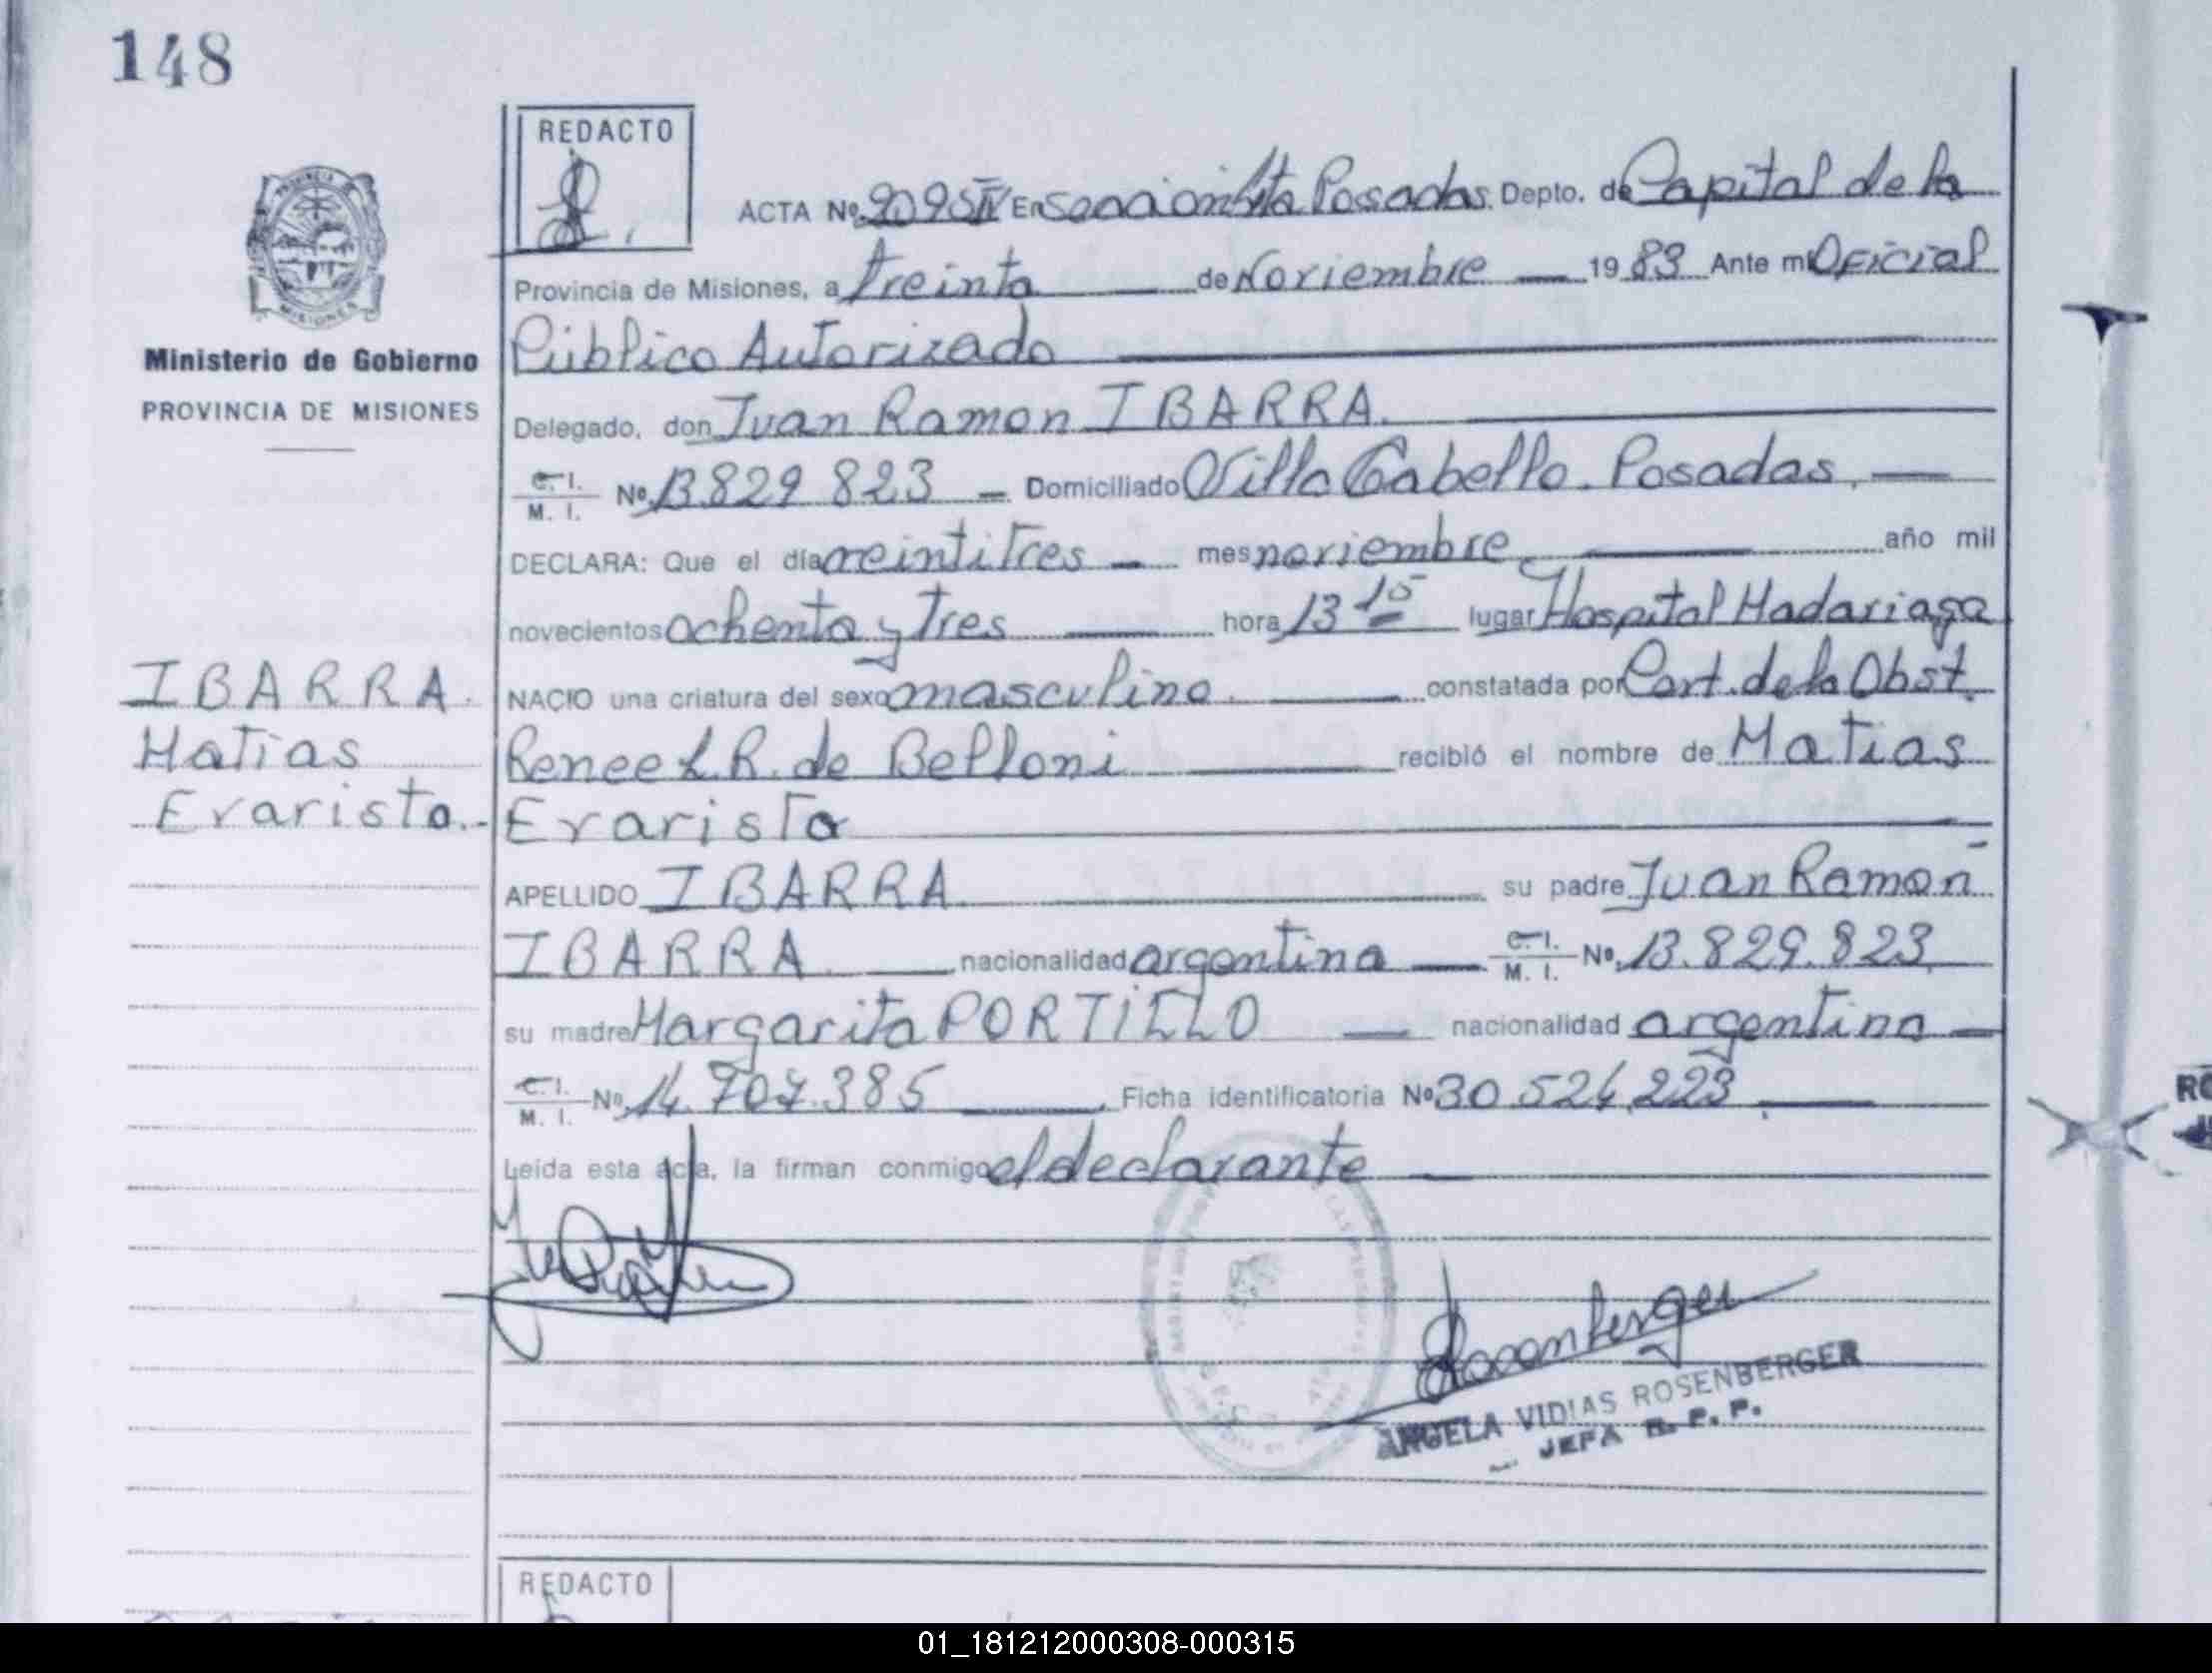 148
REDACTO
ACTA Nº 2095 IV En sección 4ta Posadas. Depto. de Capital de la
Provincia de Misiones, a treinta de Noviembre 19 83 Ante mi Oficial
Público Autorizado
Ministerio de Gobierno
PROVINCIA DE MISIONES
Delegado, don Juan Ramon IBARRA.
C. I. M. I. Nº 13.829 823 Domiciliado Villa Cabello. Posadas.
DECLARA: Que el día veintitres mes noviembre año mil
novecientos ochenta y tres hora 13 15 lugar Hospital Madariaga
NACIO una criatura del sexo masculino. constatada por Cert. de la Obst.
Renee L. R. de Belloni recibió el nombre de Matias
Evaristo
IBARRA.
Matias
Evaristo.-
APELLIDO IBARRA su padre Juan Ramon
IBARRA nacionalidad argentina C. I. M. I. Nº 13.829.823
su madre Margarita PORTILLO nacionalidad argentina
C. I. M. I. Nº 14.707.385 Ficha identificatoria Nº 30.524.223
Leída esta acta, la firman conmigo el declarante
Rosenberger
ANGELA VIDIAS ROSENBERGER
JEFA R. P. P.
REDACTO
01_181212000308-000315